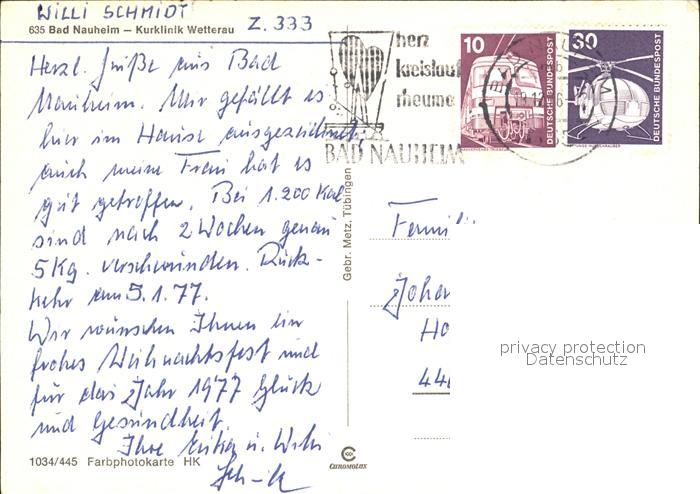 WILLI SCHMIDT
Z. 333
635 Bad Nauheim — Kurklinik Wetterau
Herzl. Grüße aus Bad
Nauheim. Mir gefällt es
hier im Hause ausgezeichnet,
auch meine Frau hat es
gut getroffen. Bei 1.200 Kal
sind nach 2 Wochen genau
5 Kg. verschwunden. Rück-
kehr am 5.1.77.
Wir wünschen Ihnen ein
frohes Weihnachtsfest und
für das Jahr 1977 Glück
und Gesundheit.
Ihre Erika u. Willi
1034/445 Farbphotokarte HK
Gebr. Metz, Tübingen
CHROMOLUX
herz
kreislauf
rheuma
BAD NAUHEIM
10
DEUTSCHE BUNDESPOST
30
DEUTSCHE BUNDESPOST
Fami
Johan
Ho
44
privacy protection
Datenschutz